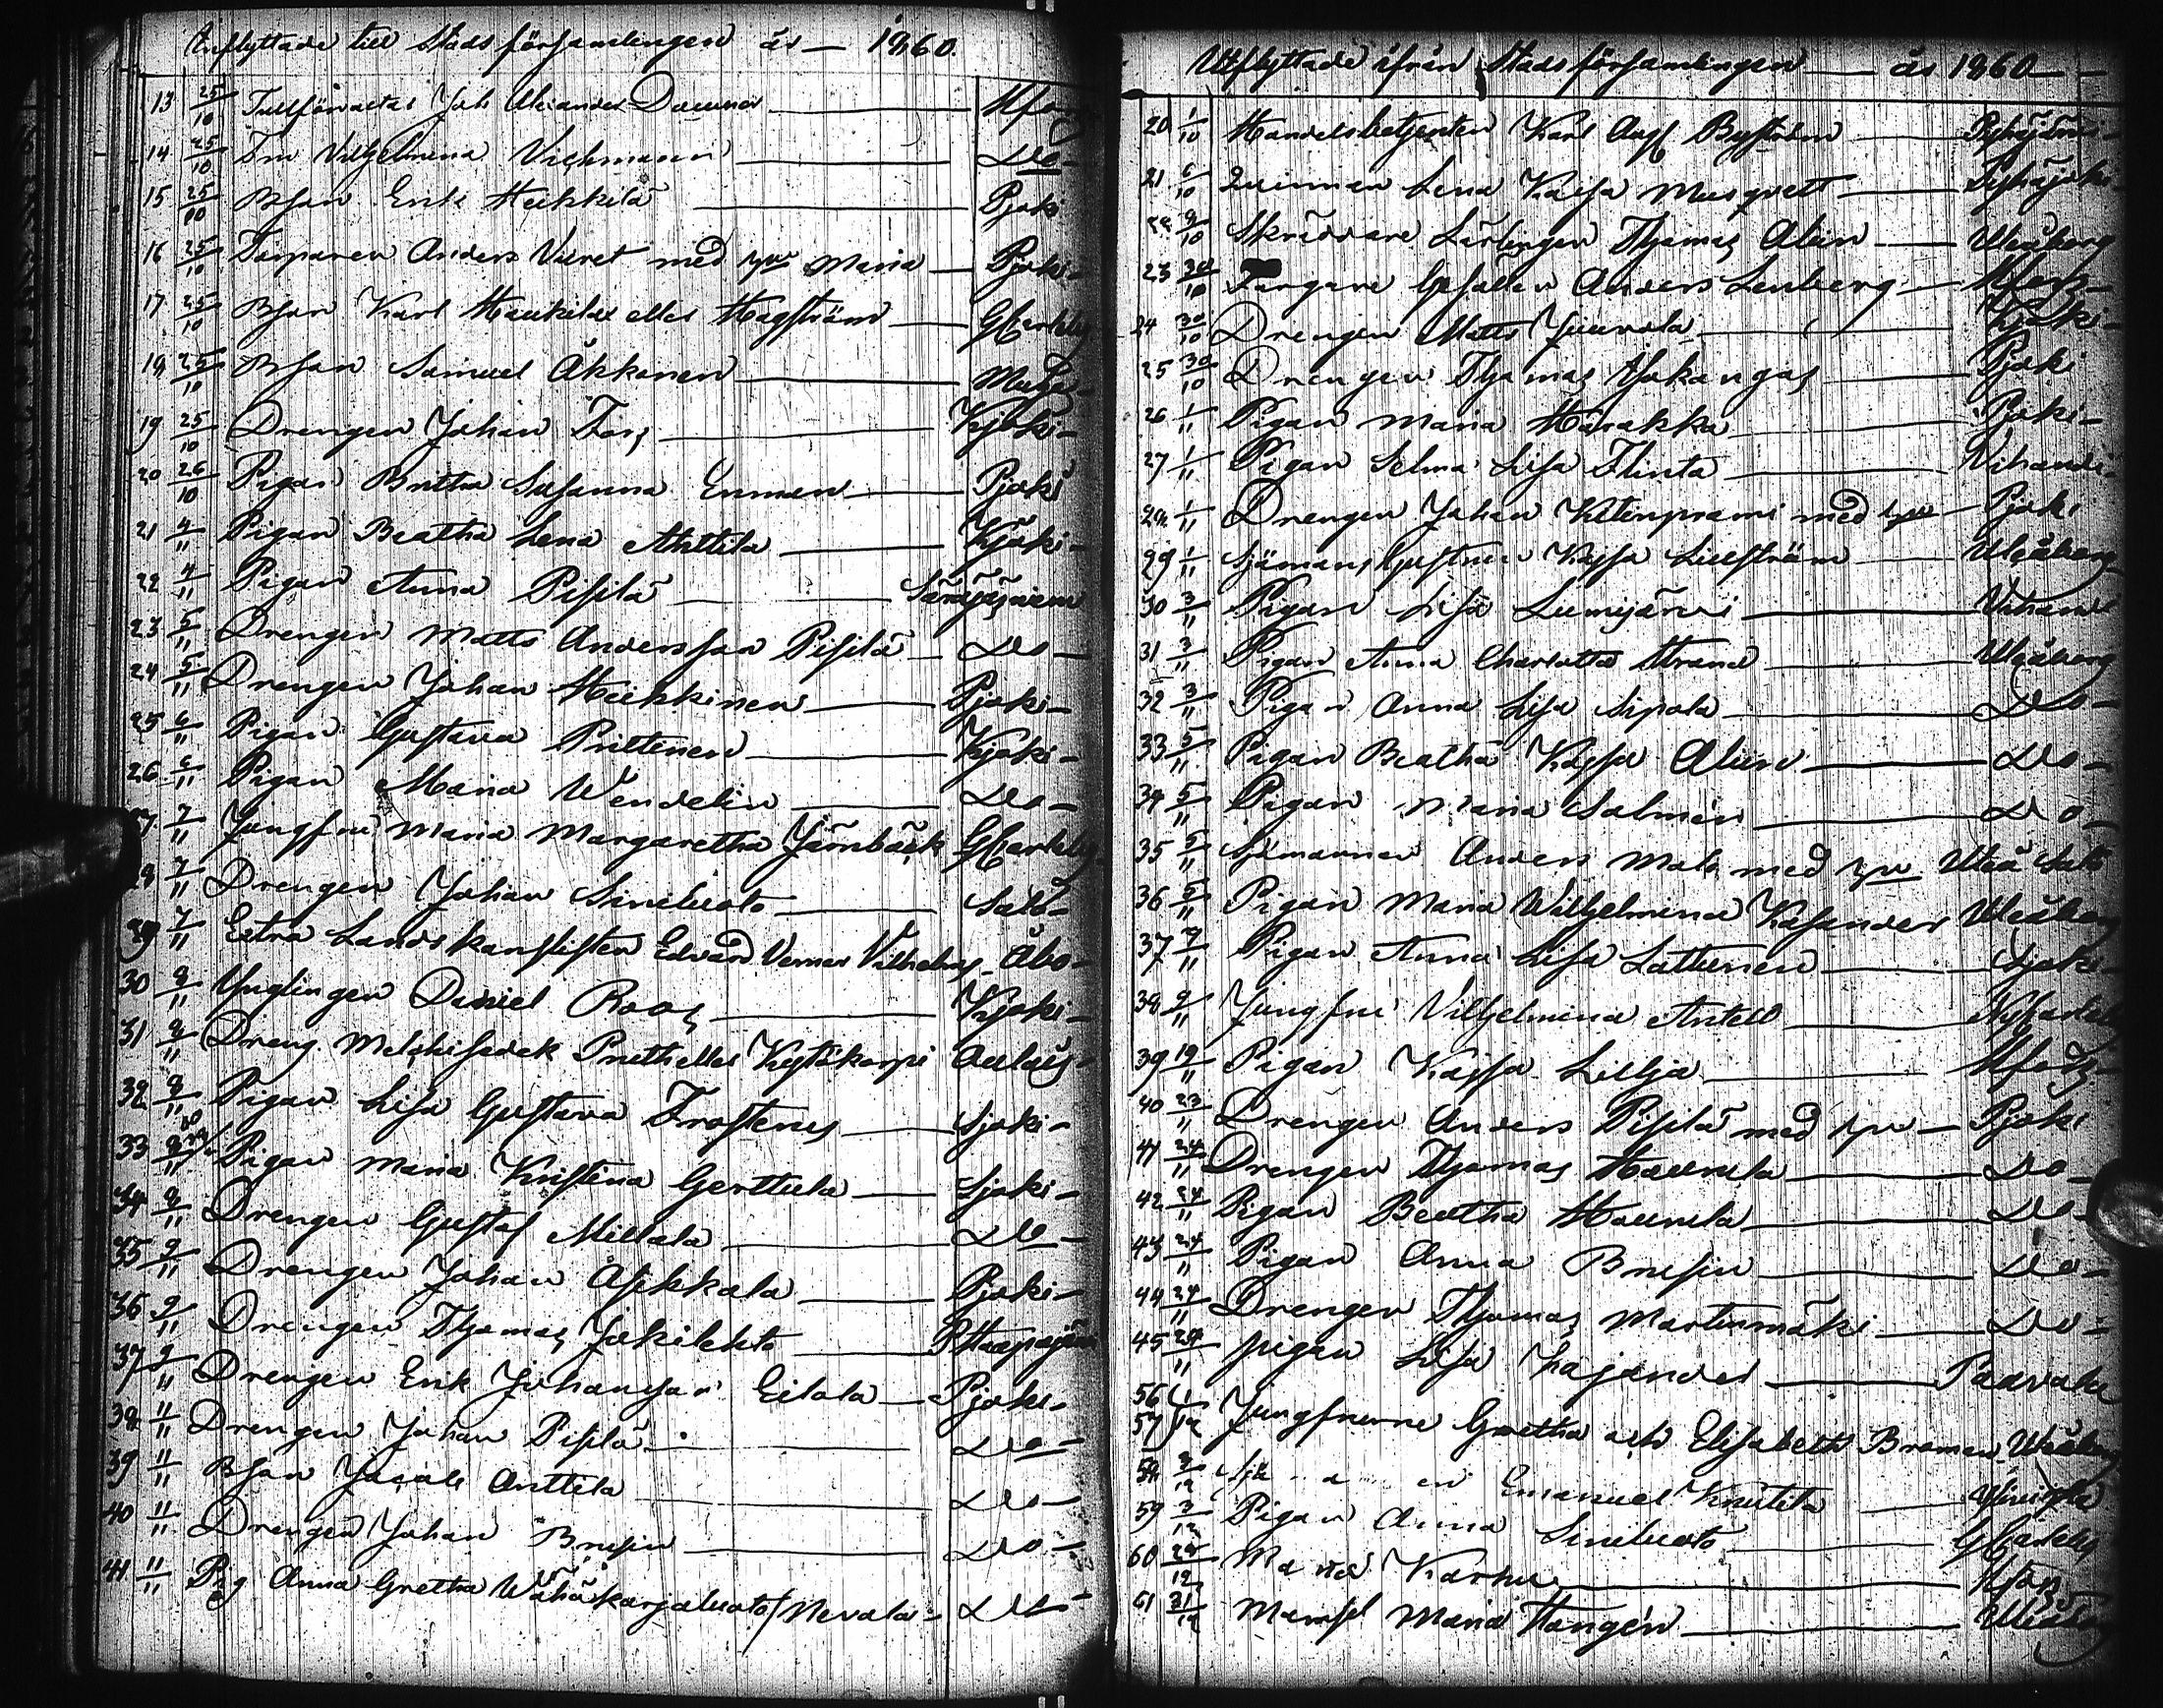 Inflyttade till Stads församlingen år — 1860
13 25/10 Tullförvaltar Joh Alexander — Hfors
14 25/10 Frn Vilhelmina Vichmann — Do —
15 25/10 Bson Erik Heikkilä — Pjoki
16 25/10 Torparen Anders Vieret med hu Maria — Pjoki —
17 25/10 Bson Karl Haukilax eller Hagström — GCarleby
18 25/10 Bson Samuel Åkkonen —
19 25/10 Drengen Johan Fors — Kjoki —
20 26/10 Pigan Britha Susanna Enman — Pjoki
21 4/11 Pigan Beatha Lena Ahttila — Kjoki —
22 4/11 Pigan Anna Pisilä — Säräjäjniemi
23 5/11 Drengen Matts Andersson Pisilä — Do —
24 5/11 Drengen Johan Heikkinen — Pjoki —
25 6/11 Pigan Gustava Prittinen — Kjoki —
26 6/11 Pigan Maria Wendelin — Do —
27 7/11 Jungfru Maria Margaretha Järnbäck GCarleby
28 7/11 Drengen Johan Siniluoto — Salo —
29 7/11 Extra Landskanslisten Edvard Verner Vilhelms — Åbo —
30 8/11 Ynglingen Daniel Roos — Kjoki —
31 8/11 Dreng Melchisedek Prutheller Kytökorpi
32 8/11 Pigan Lisa Gustava Frosterus — Sjoki —
33 8/11 Pigan Maria Kristina Gerttula — Sjoki —
34 8/11 Drengen Gustaf Millala — Do —
35 9/11 Drengen Johan Åpkkala — Pjoki —
36 9/11 Drengen Thomas Jokilehto — Haapajärvi
37 9/11 Drengen Erik Johansson Eilola — Pjoki —
38 11/11 Drengen Johan Pisilä — Do —
39 11/11 Bson Jacob Anttila — Do —
40 11/11 Drengen Johan Brusin — Do —
41 11/11 Pig Anna Gretha Wähäkarjaluoto/Nevala — Do —
Utflyttade ifrån Stads församlingen — år 1860 —
20 1/10 Handelsbetjenten Karl Aug Byström — Pyhäjärvi —
21 6/10 Quinnan Lena Kaisa Musqvett — Pyhäjoki
22 9/10 Skräddare Lärlingen Thomas Alein — Uleåborg
23 30/10 Färgare Gesällen Anders Lenberg — Hfors —
24 30/10 Drengen Matts Juurola — Kjoki —
25 30/10 Drengen Thomas Ahokangas — Pjoki
26 1/11 Pigan Maria Harakka — Pjoki —
27 1/11 Pigan Selma Lisa Flinta — Vihandi
28 1/11 Drengen Johan Kltenprami med hu — Pjoki
29 1/11 Sjömans Hustrun Kajsa Lillström — Uleåborg
30 3/11 Pigan Lisa Lumijärvi — Vihandi
31 3/11 Pigan Anna Charlotta — Uleåborg
32 3/11 Pigan Anna Lisa Sipola — Do —
33 5/11 Pigan Beatha Kajsa Alein — Do —
34 5/11 Pigan Maria Salmen — Do —
35 5/11 Sjömannen Anders Mals med hu Uleå Salo
36 5/11 Pigan Maria Wilhelmina Kasander Uleåborg
37 9/11 Pigan Anna Lisa Lattunen — Sjoki —
38 9/11 Jungfru Vilhelmina Antell — NyCarleby
39 19/11 Pigan Kajsa Lillja — Hfors —
40 23/11 Drengen Anders Pisilä med hu — Pjoki
41 24/11 Drengen Thomas Haurula — Do —
42 24/11 Pigan Beatha Haurula — Do —
43 24/11 Pigan Anna Brusin — Do —
44 24/11 Drengen Thomas Martinmäki — Do —
45 24/11 pigan Lisa Kajander — Paavola
56 57 1/12 Jungfrurne Gretha och Elisabeth Braman Uleåborg
58 3/12 Emanuel Knutila —
59 3/12 Pigan Anna Siniluoto — GCarleby
60 29/12 Karhu — Hfors —
61 31/12 Mamsel Maria Hangén — Uleåborg